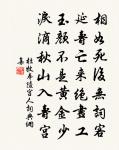 相如死後無詞客
延壽亡來絕畫工
玉顏不是黃金少
淚滴秋山入壽宮
杜牧奉陵宮人詞典網
集